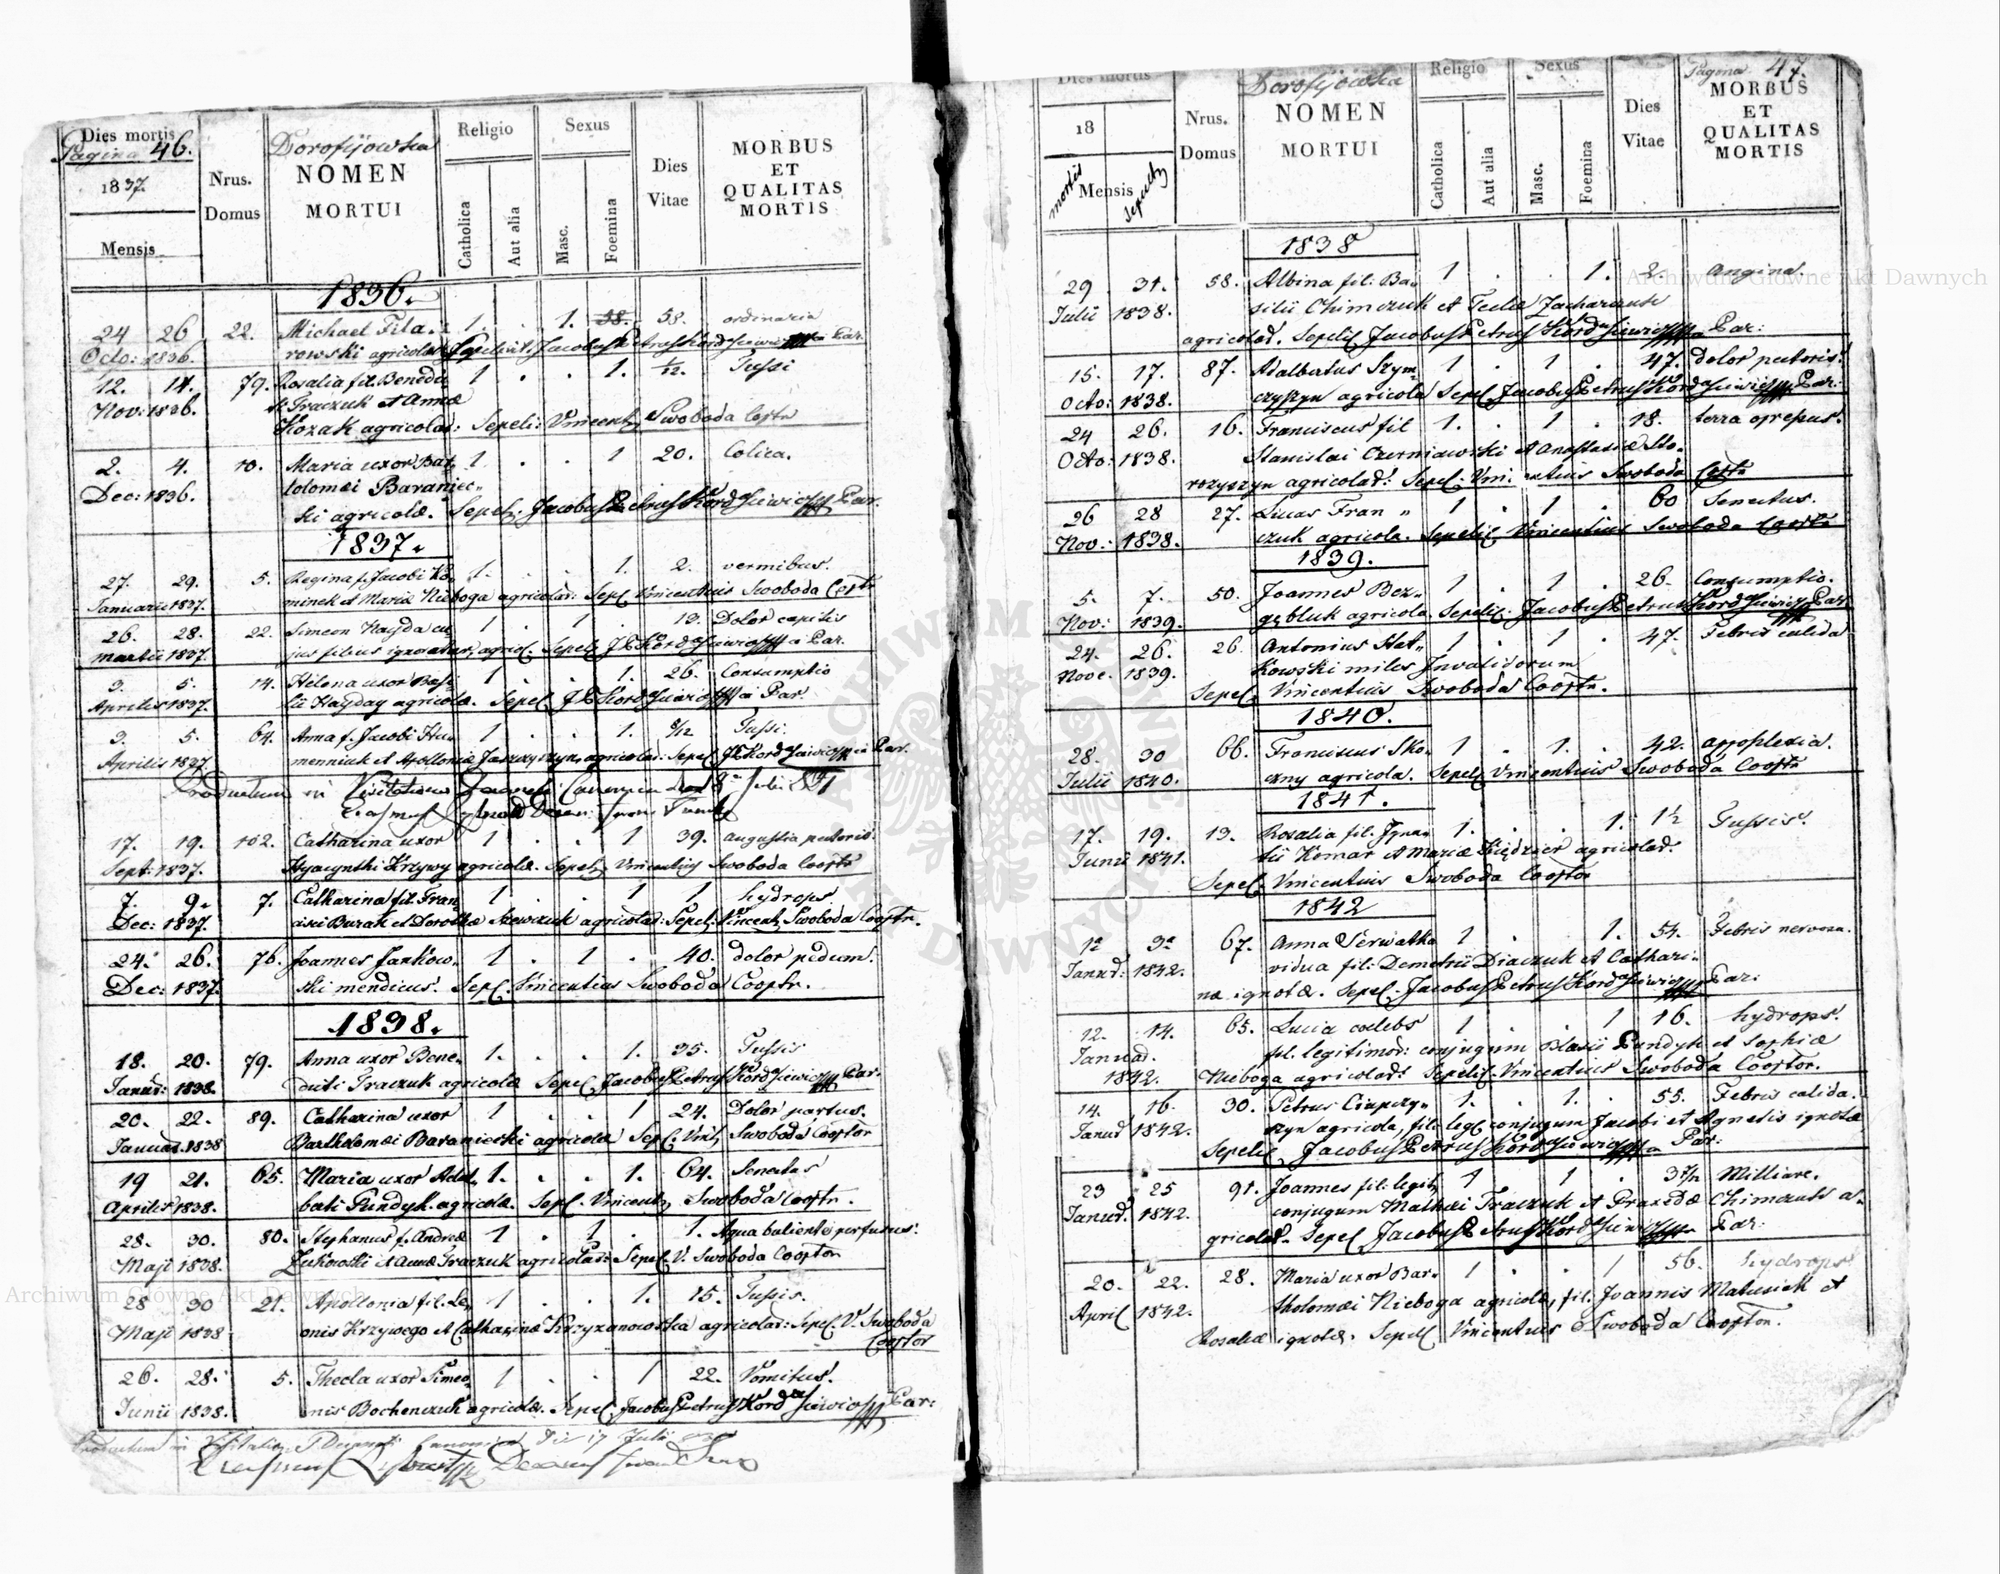 Dies mortis
Pagina 46.
1837.
Mensis
Nrus. Domus
Dorofijowka
NOMEN
MORTUI
Religio
Catholica
Aut alia
Sexus
Masc.
Foemina
Dies Vitae
MORBUS
ET
QUALITAS
MORTIS
1836.
24 26 22. Michael Fila- 1. . 1. 58. 58. ordinaria
Octo: 1836. rowski agricola Sepelivit. Jacobus Petrus Par.
12. 14. 79. Rosalia fil. Benedi- 1 . . 1. 1/12. Tussi
Nov: 1836. cti Traczuk et Annæ
Kozak agricolar: Sepeli: Vincent Swoboda Coptr
2. 4. 10. Maria uxor Bar- 1 . . 1 20. Colica.
Dec: 1836. tolomæi Baraniec-
ki agricolæ. Sepel. Jacobus Petrus Par.
1837.
27. 29. 5. Regina f. Jacobi Ko- 1. . . 1. 2. vermibus.
Januarii 1837. minek et Mariæ Nieboga agricolar: Sepel Vincentius Swoboda Coptr
26. 28. 22. Simeon Hayda cu- 1 . 1 . Dolor capitis
Martii 1837. jus filius ignoratur, agricol. Sepel. J P Par.
3. 5. 14. Helena uxor Basi- 1 . . 1. 26. Consumptio
Aprilis 1837. lii Hayday agricolæ. Sepel. J P Par.
3. 5. 64. Anna f. Jacobi Hu- 1 . . 1. 8/12 Tussi.
Aprilis 1837. menniuk et Apolloniæ agricolar: Sepel. J P Par.
Productum in Visitatione
17. 19. 102. Catharina uxor 1 . . 1 39. angustia pectoris.
Sept: 1837. Hyacynthi Krzywy agricolæ. Sepel. Vincentius Swoboda Cooptr
7. 9. 7. Catharina fil. Fran- 1 . . 1 1 hydrops.
Dec: 1837. cisci Burak et Dorothæ Szewczuk agricolar: Sepel: Vincent Swoboda Cooptr.
24. 26. 76. Joannes Jankow- 1 . 1 . 40. dolor pedum.
Dec: 1837. ski mendicus. Sepel. Vincentius Swoboda Cooptr.
1838.
18. 20. 79. Anna uxor Bene- 1. . . 1. 35. Tussis
Januar: 1838. dicti Traczuk agricolæ Sepel. Jacobus Petrus Par:
20. 22. 89. Catharina uxor 1 . . 1 24. Dolor partus.
Januar. 1838 Bartholomæi Baraniecki agricolæ Sepel. Vint Swoboda Cooptor
19 21. 65. Maria uxor Adal- 1. . . 1. 64. Senectus
Aprilis 1838. berti Pundyk agricolæ. Sepel. Vincent Swoboda Cooptr.
28. 30. 80. Stephanus f. Andreæ 1 . 1 . 1. Aqua buliente perfusus.
Maji 1838. Żukowski et Annæ Traczuk agricolar: Sepel. V. Swoboda Cooptor
28 30 21. Apollonia fil. Le- 1 . . 1. 15. Tussis.
Maji 1838 onis Krzywego et Catharinæ Krzyżanowska agricolar: Sepel. V. Swoboda
Cooptor
26. 28. 5. Thecla uxor Simeo- 1 . . 1 22. Vomitus.
Junii 1838. onis Bochenczuk agricolæ. Sepel. Jacobus Petrus Par:
Productum in Visitatione Canonica Die 17 Julii
Dies mortis
18
mortis Mensis sepult
Nrus. Domus
Dorofijowka
NOMEN
MORTUI
Religio
Catholica
Aut alia
Sexus
Masc.
Foemina
Dies Vitae
Pagina 47.
MORBUS
ET
QUALITAS
MORTIS
1838
29 31. 58. Albina fil: Ba- 1 . . 1. 2. Angina.
Julii 1838. silii Chimczuk et Teclæ Zacharczuk
agricolar. Sepelit Jacobus Petrus Par:
15. 17. 87. Adalbertus Szym- 1 . 1 . 47. dolor pectoris.
Octo: 1838. czyszyn agricola Sepel Jacobus Petrus Par:
24 26. 16. Franciscus fil 1. . 1 . 18. terra opressus.
Octo: 1838. Stanislai Czerniawski et Anastasiæ Sto-
rozyszyn agricolar: Sepel. Vincentius Swoboda Coptr
26 28 27. Lucas Fran- 1 . 1 . 60 Senectus.
Nov: 1838. czuk agricola. Sepelit. Vincentius Swoboda Cooptr
1839.
5. 7. 50. Joannes Bez- 1 . 1 . 26. Consumptio.
Nov: 1839. gębluk agricola Sepelit. Jacobus Petrus Par.
24. 26. 26. Antonius Hat- 1 . 1 . 47. Febris calida
Nove. 1839. kowski miles Invalidorum
Sepel. Vincentius Swoboda Cooptr.
1840.
28. 30 66. Franciscus Sko- 1 . 1. . 42. appoplexia.
Julii 1840. czny agricola. Sepel. Vincentius Swoboda Cooptr
1841.
17. 19. 13. Rosalia fil. Igna- 1. . . 1. 1½ Tussis.
Junii 1841. tii Komar et Mariæ Kiędzier agricolar.
Sepel. Vincentius Swoboda Cooptor
1842
1a 3a 67. Anna Serwatka 1 . . 1. 54. Febris nervosa.
Januar: 1842. vidua fil: Demetrii Diaczuk et Cathari-
næ ignotæ. Sepel. Jacobus Petrus Par:
12. 14. 65. Lucia cælebs 1 . . 1 16. hydrops.
Januar. fil. legitimor: conjugum Blasii Pundyk et Sophiæ
1842. Nieboga agricolar: Sepelit. Vincentius Swoboda Cooptor.
14. 16. 30. Petrus Ciupczy- 1. . 1. . 55. Febris calida.
Januar 1842. szyn agricola, fil. leg. conjugum Jacobi et Agnetis ignotæ
Sepelit Jacobus Petrus Par:
23 25 91. Joannes fil: legit. 1 . 1 . Milliare.
Januar. 1842. conjugum Mathæi Traczuk et Praxedæ Chimczuk a-
gricolar. Sepel Jacobus Petrus Par:
20. 22. 28. Maria uxor Bar- 1 . . 1 56. hydrops
April 1842. tholomæi Nieboga agricolæ, fil. Joannis Matusiak et
Rosaliæ ignotæ. Sepel Vincentius Swoboda Cooptor.
Archiwum Główne Akt Dawnych
Archiwum Główne Akt Dawnych
ARCHIWUM GŁÓWNE AKT DAWNYCH